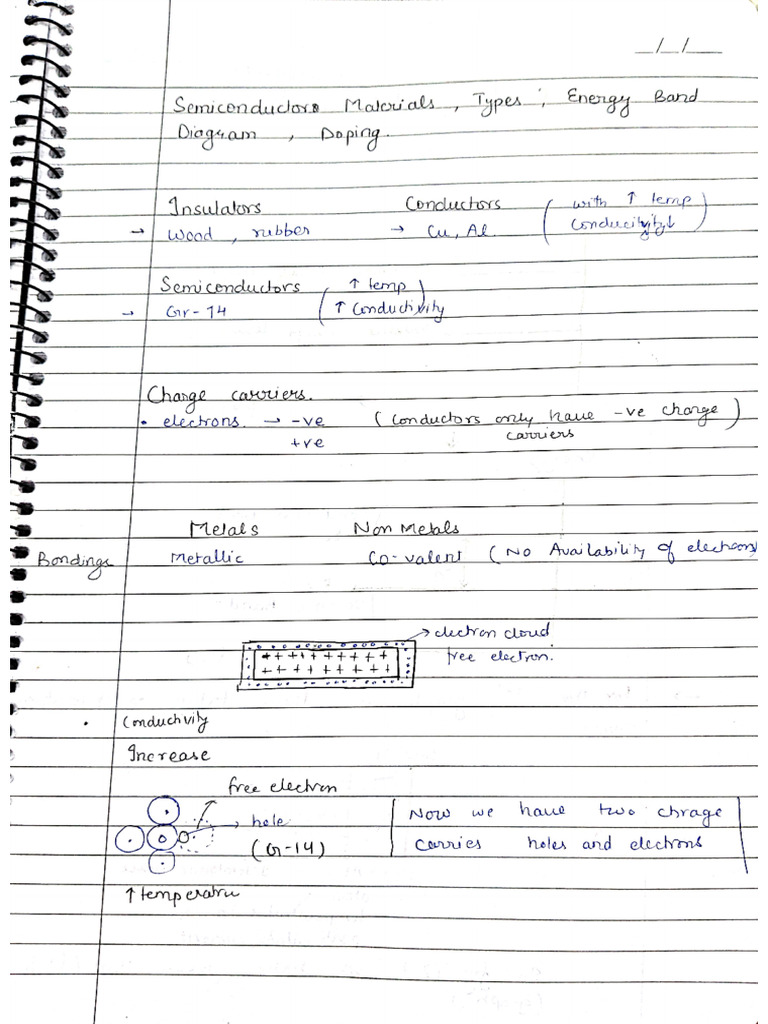 _/_/_
Semiconductors Materials, Types, Energy Band
Diagram, Doping.
Insulators Conductors (with ↑ temp
→ Wood, rubber → Cu, Al. Conducitvity↓)
Semiconductors (↑ temp)
→ Gr-14 (↑ Conductivity
Charge carriers.
• electrons → -ve (Conductors only have -ve charge)
+ve carriers
Metals Non Metals
Bondings Metallic Co-valent (No Availability of electrons)
→ electron cloud
+ + + + + + + + + free electron.
+ + + + + + + + +
• Conductivity
Increase
free electron
→ hole Now we have two chrage
(Gr-14) carries holes and electrons
↑ temperatru